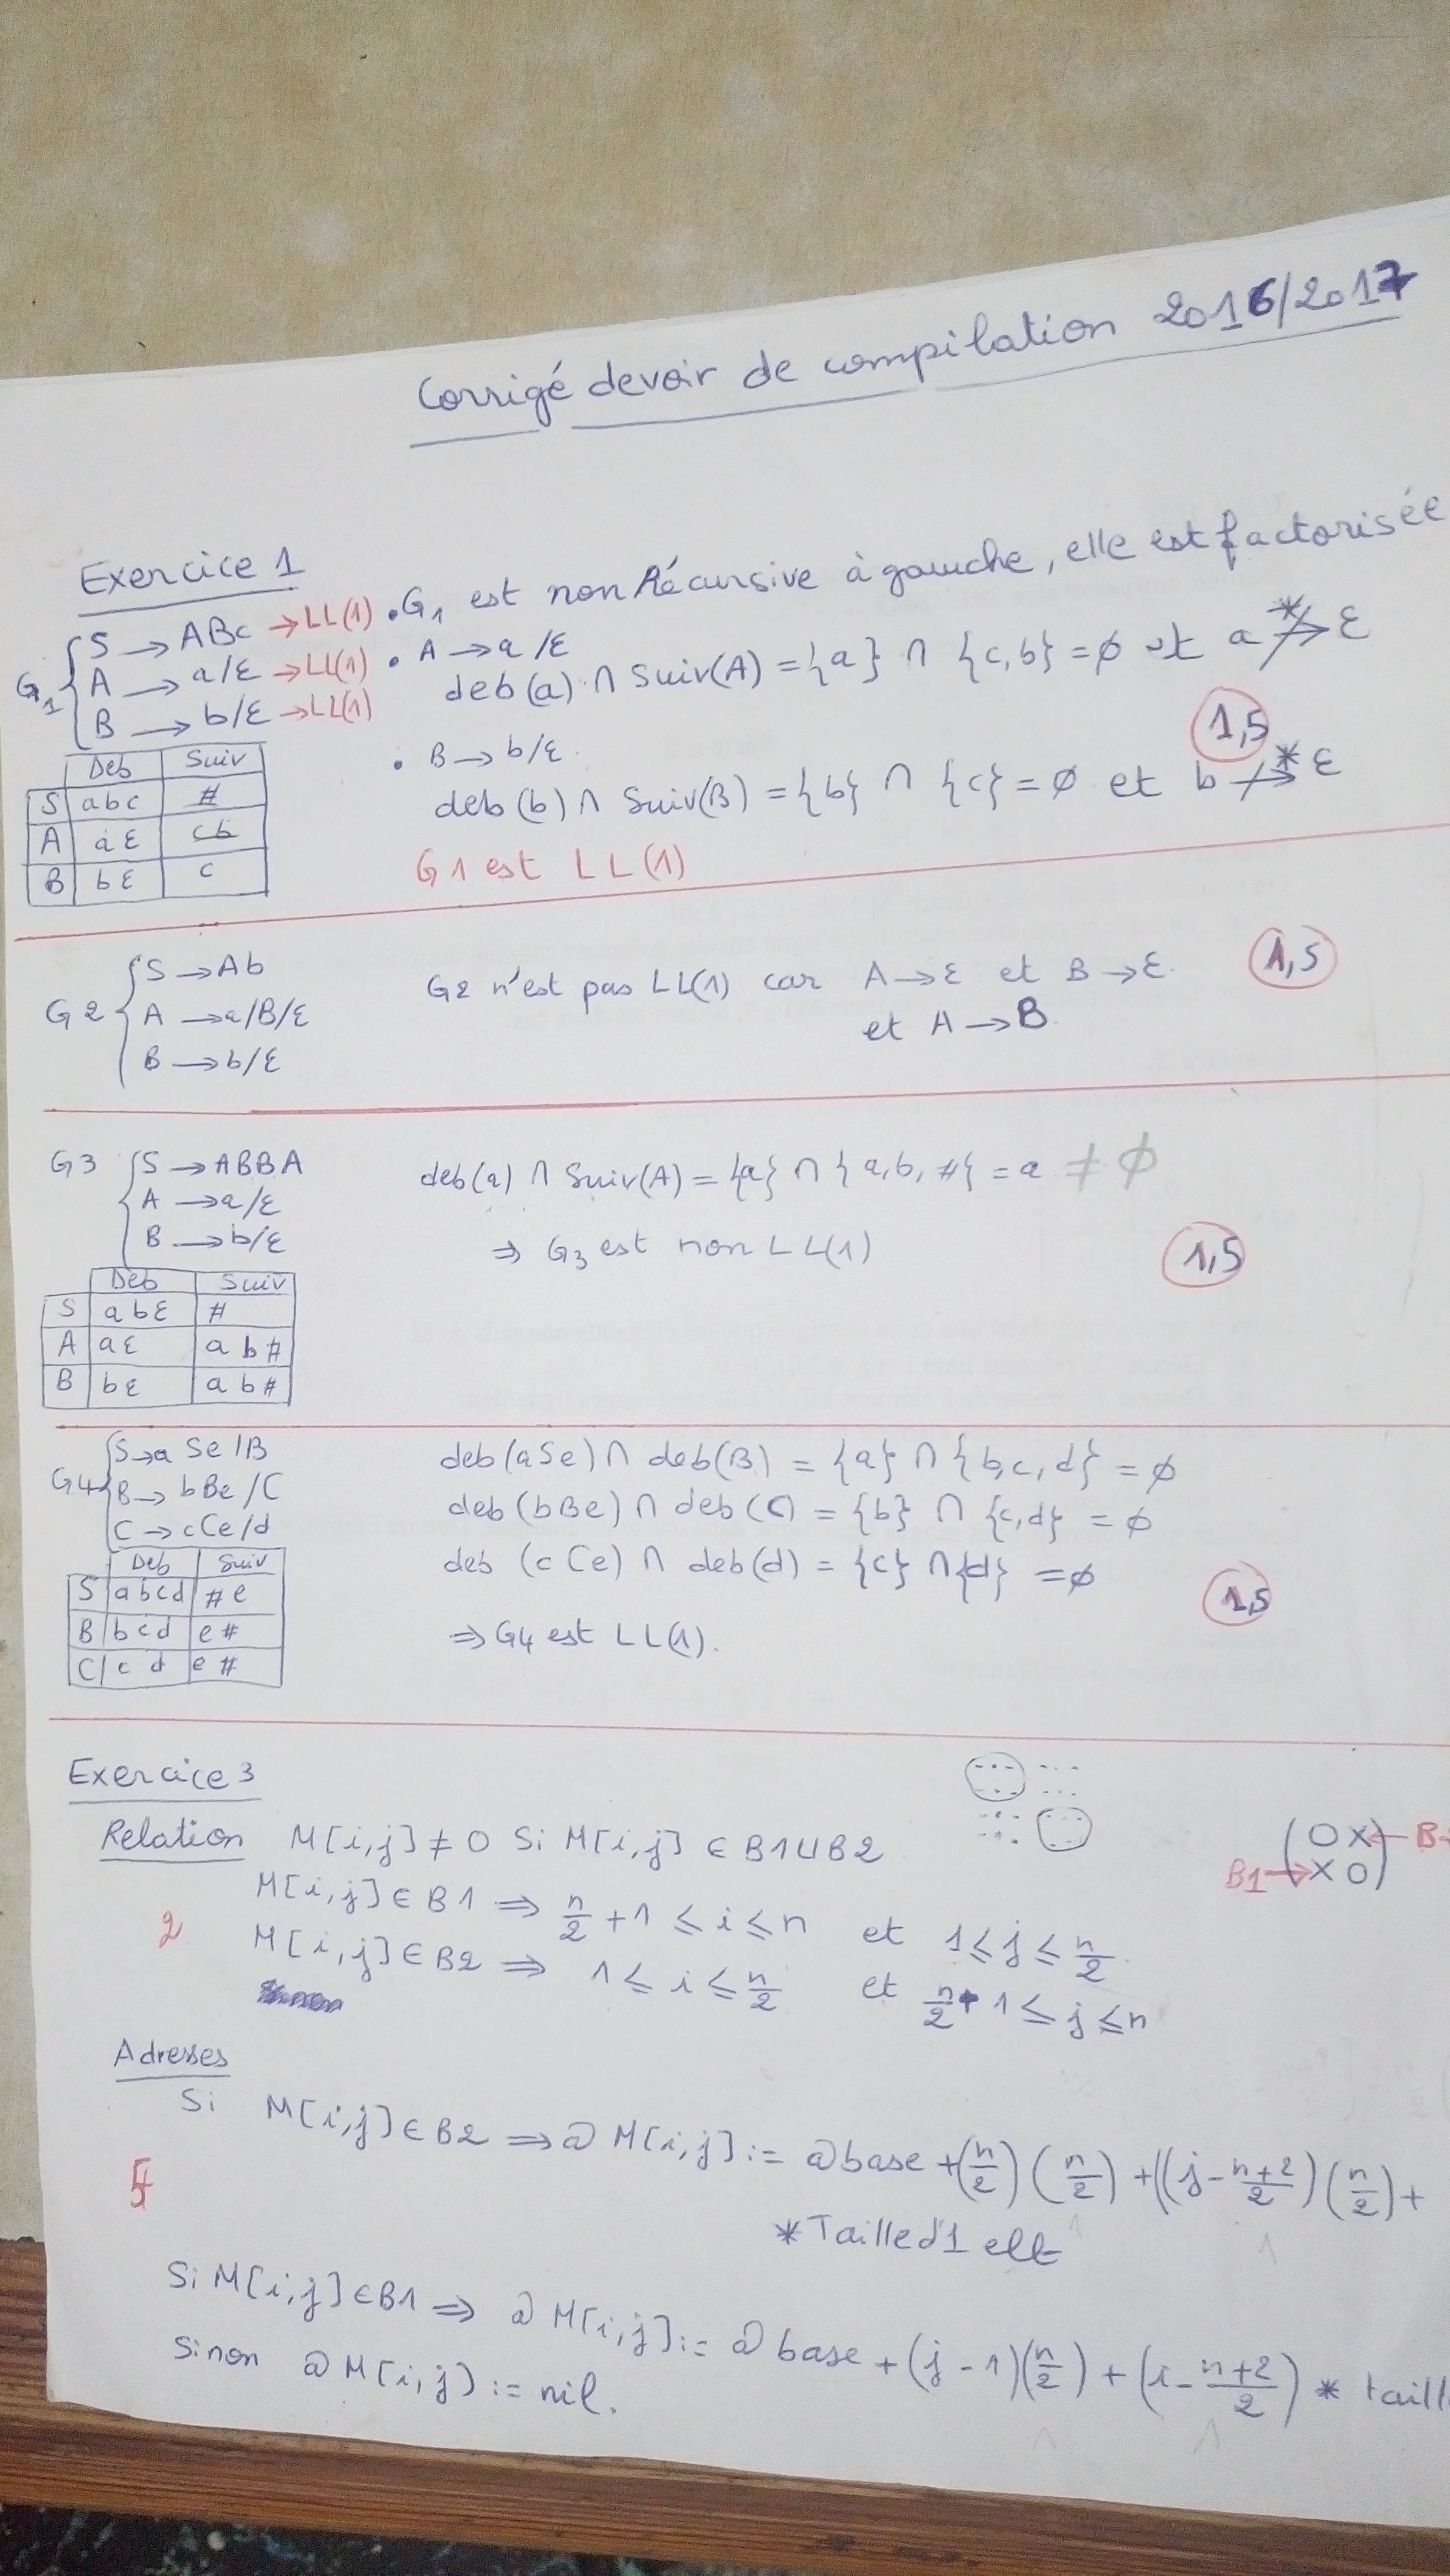 Corrigé devoir de compilation 2016/2017
Exercice 1
G1 { S → ABc → LL(1)
A → a/ε → LL(1)
B → b/ε → LL(1)
Deb Suiv
S abc #
A aε cb
B bε c
• G1 est non Récursive à gauche, elle est factorisée
• A → a/ε
deb(a) ∩ Suiv(A) = {a} ∩ {c,b} = ∅ et a ↛* ε
1,5
• B → b/ε.
deb(b) ∩ Suiv(B) = {b} ∩ {c} = ∅ et b ↛* ε
G1 est LL(1)
G2 { S → Ab
A → a/B/ε
B → b/ε
G2 n'est pas LL(1) car A → ε et B → ε.
et A → B.
1,5
G3 { S → ABBA
A → a/ε
B → b/ε
Deb Suiv
S abε #
A aε ab#
B bε ab#
deb(a) ∩ Suiv(A) = {a} ∩ {a,b,#} = a ≠ ∅
⇒ G3 est non LL(1)
1,5
G4 { S → aSe/B
B → bBe/C
C → cCe/d
Deb Suiv
S abcd #e
B bcd e#
C cd e#
deb(aSe) ∩ deb(B) = {a} ∩ {b,c,d} = ∅
deb(bBe) ∩ deb(C) = {b} ∩ {c,d} = ∅
deb(cCe) ∩ deb(d) = {c} ∩ {d} = ∅
1,5
⇒ G4 est LL(1).
Exercice 3
Relation M[i,j] ≠ 0 Si M[i,j] ∈ B1 ∪ B2
(O X) ← B
B1 → (X O)
M[i,j] ∈ B1 ⇒ n/2 + 1 ≤ i ≤ n et 1 ≤ j ≤ n/2.
2
M[i,j] ∈ B2 ⇒ 1 ≤ i ≤ n/2 et n/2 + 1 ≤ j ≤ n
Adresses
Si M[i,j] ∈ B2 ⇒ @ M[i,j] := @base + (n/2)(n/2) + ((j - n+2/2)(n/2) +
5
* Taille d'1 elt
Si M[i,j] ∈ B1 ⇒ @ M[i,j] := @base + (j - 1)(n/2) + (i - n+2/2) * taill
Sinon @ M[i,j] := nil.